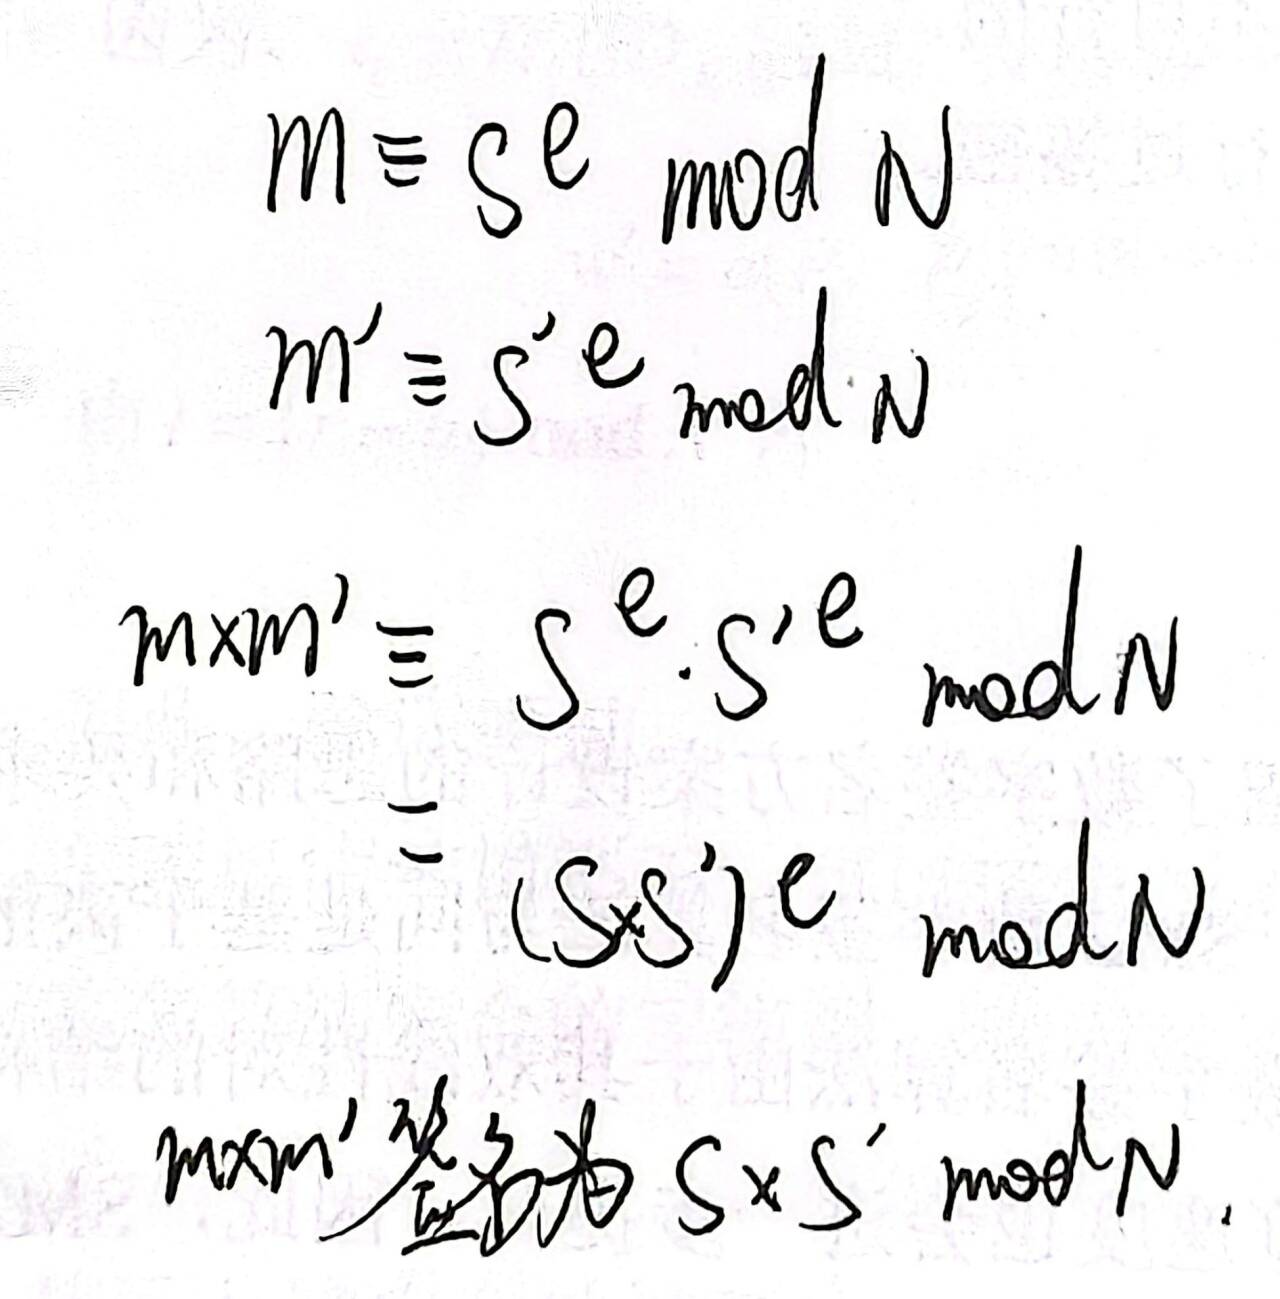 m ≡ s^e mod N
m' ≡ s'^e mod N
m×m' ≡ s^e · s'^e mod N
= (s×s')^e mod N
m×m' 签名为 s×s' mod N.